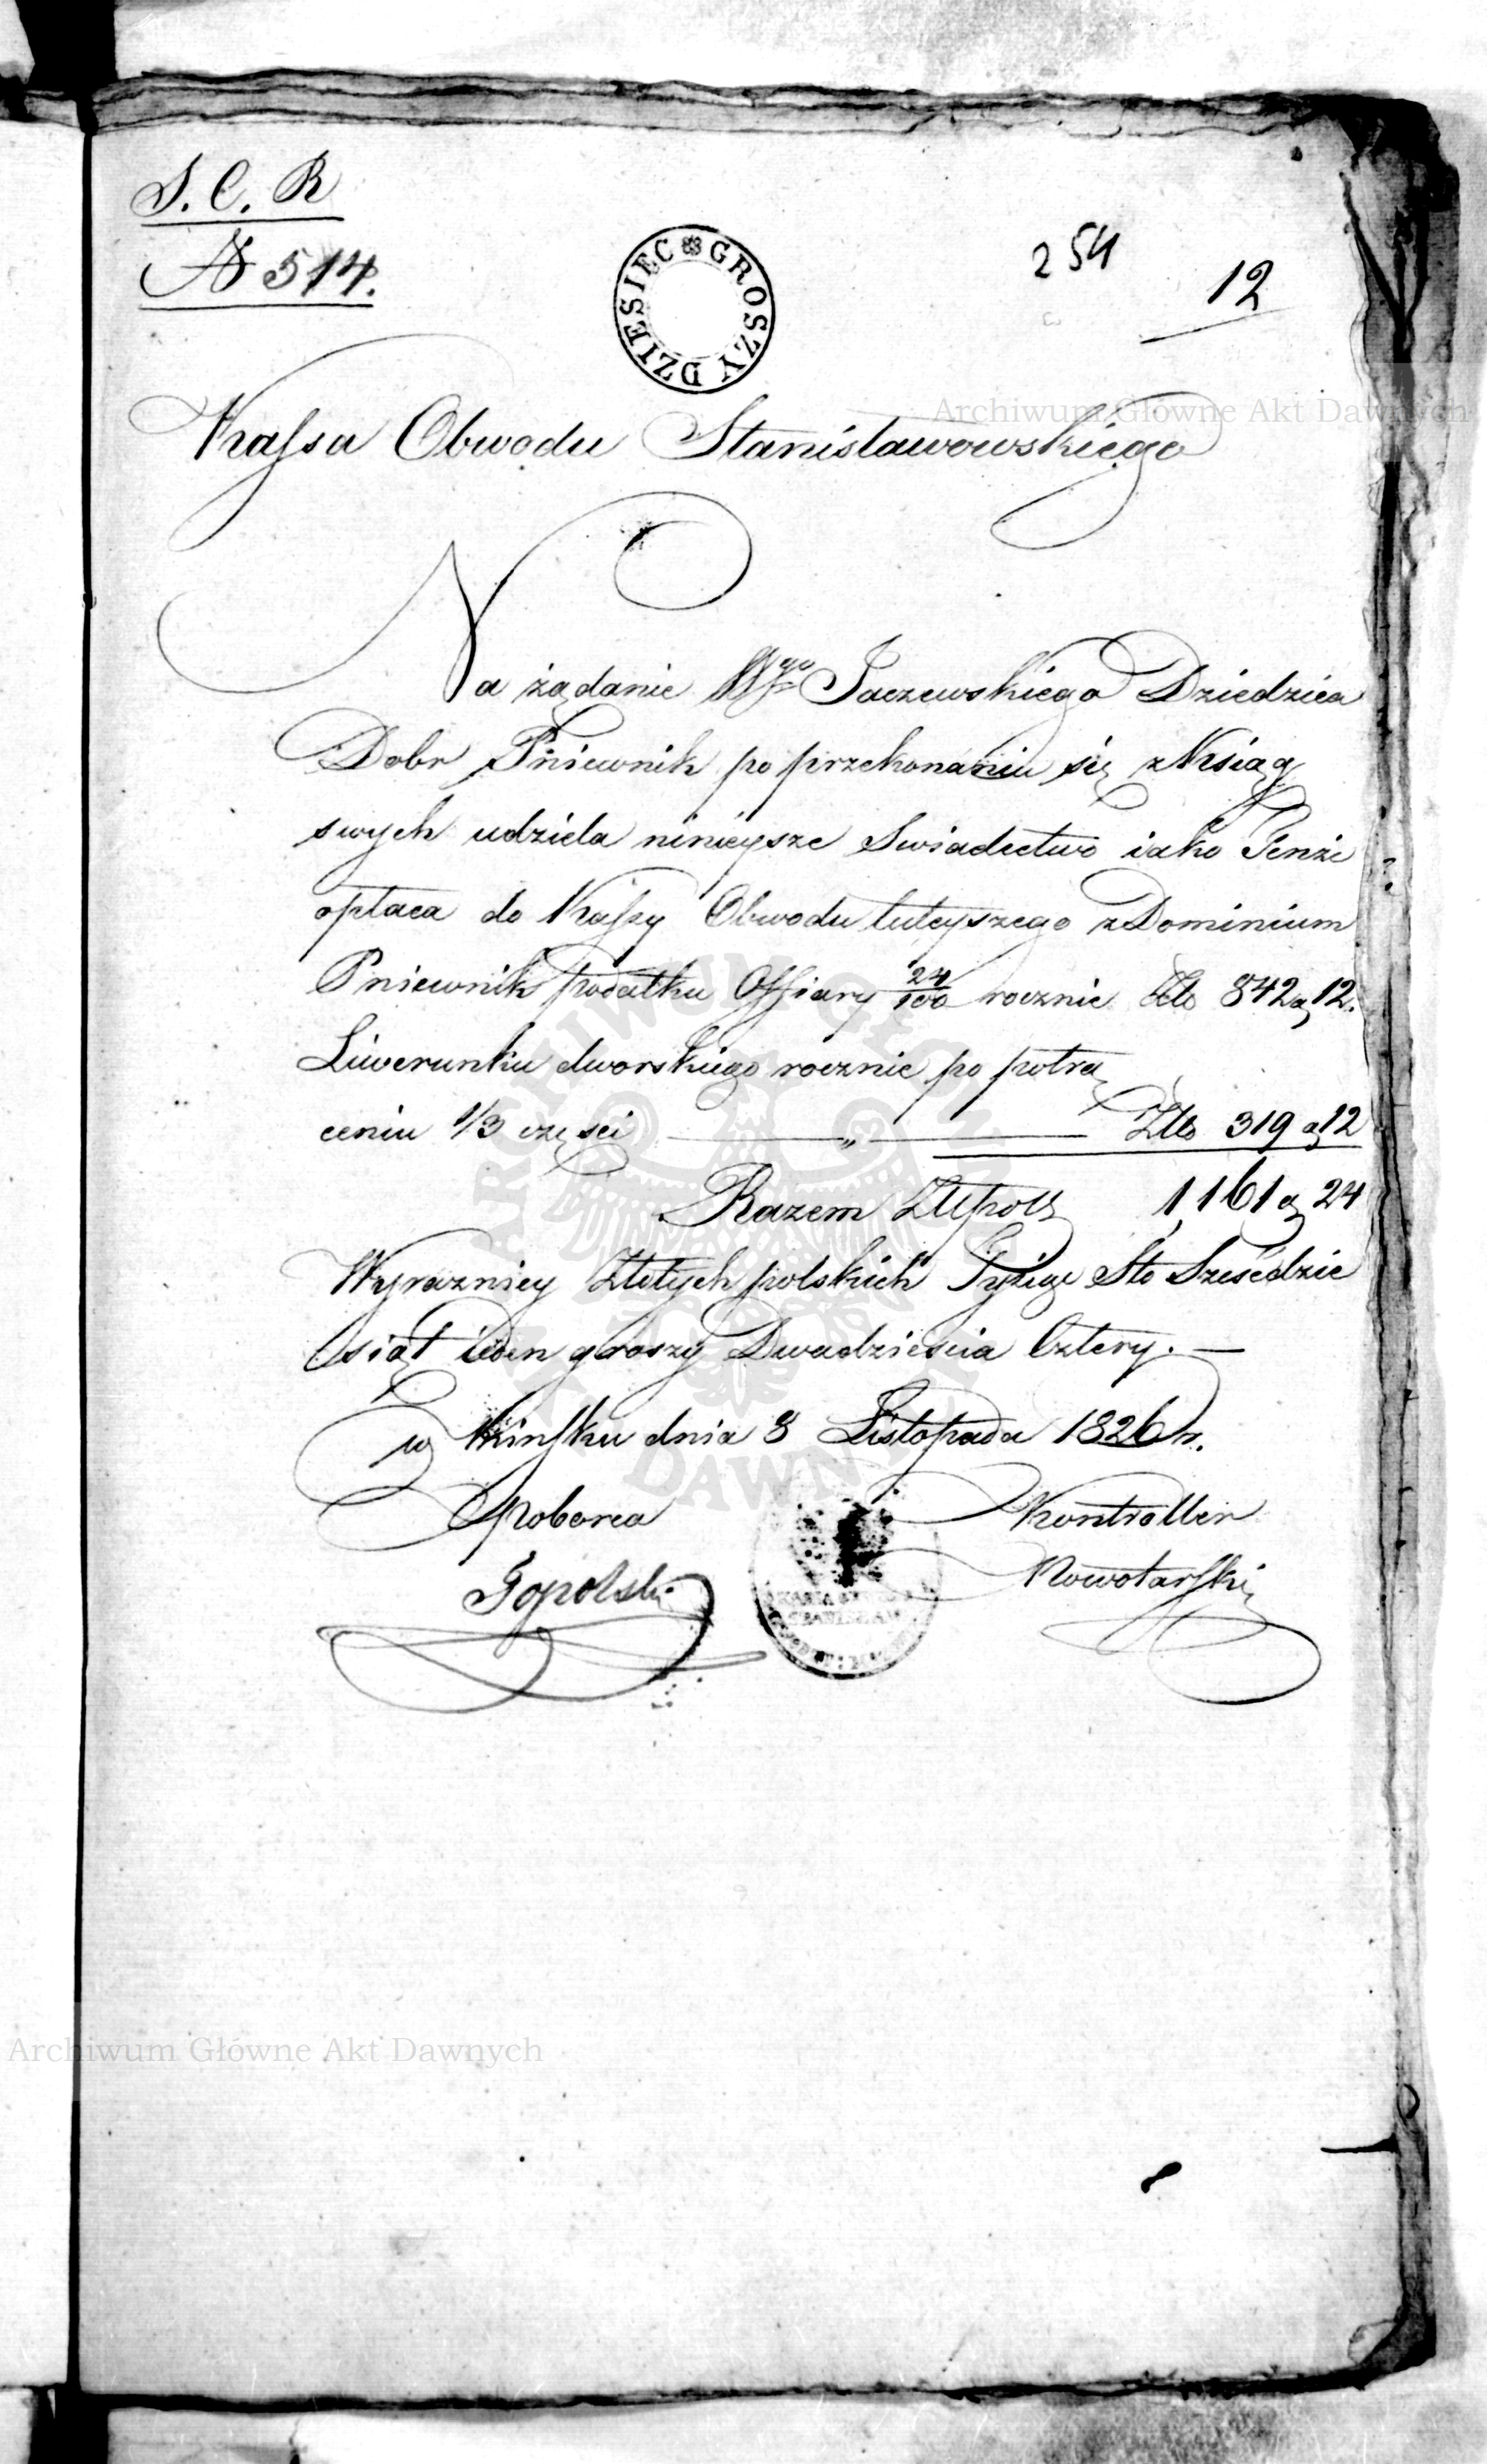 S. C. R
N 514.
GROSZY DZIESIEC
254
12
Archiwum Główne Akt Dawnych
Kassa Obwodu Stanisławowskiego
Na żądanie Wgo Jaczewskiego Dziedzica
Dobr Pniewnik po przekonaniu się z Ksiąg
swych udziela ninieysze Swiadectwo iako Tenże
opłaca do Kassy Obwodu tuteyszego z Dominium
Pniewnik podatku Offiary 24/100 rocznie Złp 842 g 12.
Liwerunku dworskiego rocznie po potrą
ceniu 1/3 części — „ — Złp 319 g 12
Razem Złłpols 1,161 g 24
Wyrazniey Złotych polskich Tysiąc Sto Sześćdzie
siąt ieden groszy Dwadzieścia Cztery. —
w Mińsku dnia 8 Listopada 1826 r.
Poborca Kontroller
Topolski Nowotarski
ARCHIWUM GŁÓWNE AKT DAWNYCH
Archiwum Główne Akt Dawnych